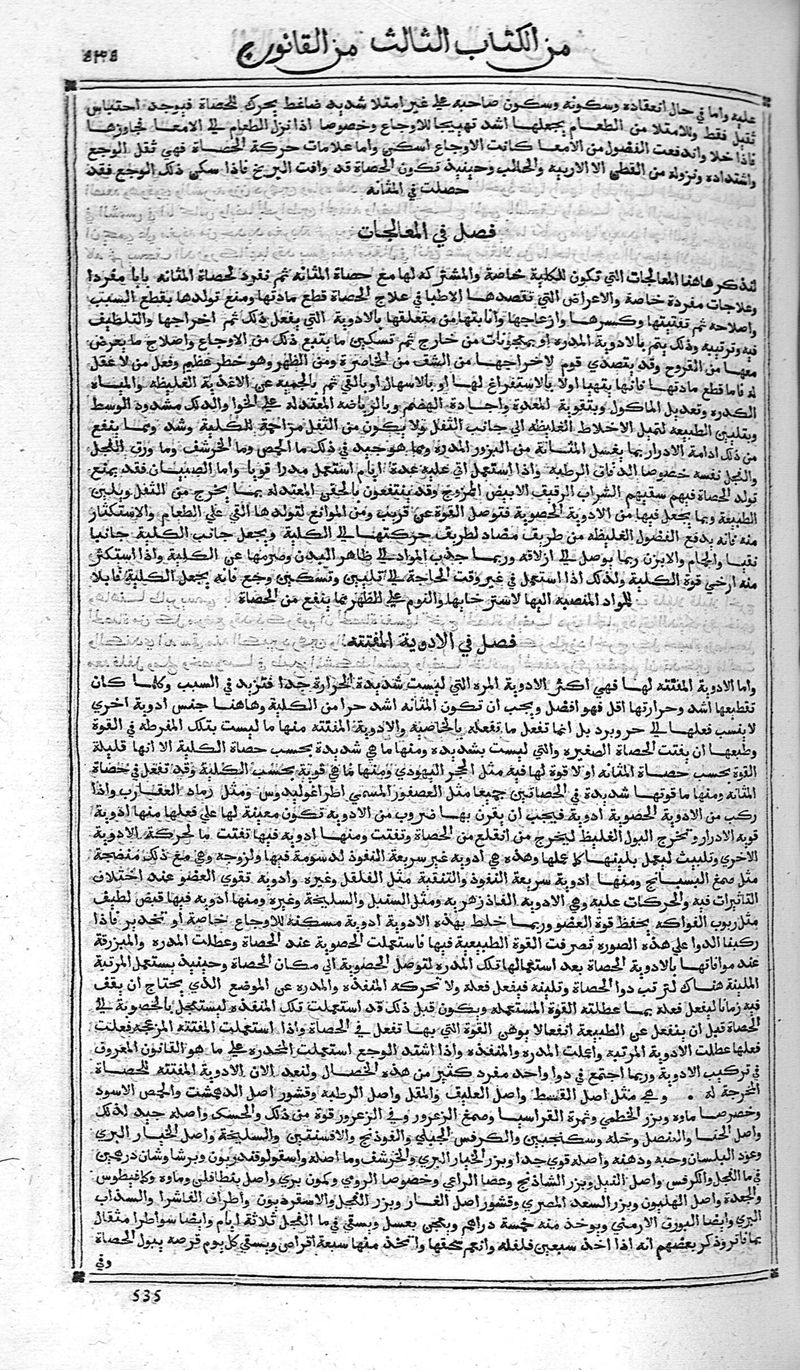 من الكتاب الثالث من القانون
٥٣٥
عليه واما في حال انعقاده وسكونه وسكون صاحبه على غير امتلا شديد ضاغط يحرك الحصاة فيوجد احتباس
ثقيل فقط وللامتلا من الطعام يجعلها اشد تهييجا للاوجاع وخصوصا اذا نزل الطعام الى الامعا فجاوزها
فاذا خلا واندفعت الفضول من الامعا كانت الاوجاع اسكن واما علامات حركة الحصاة فهي ثقل الوجع
واشتداده ونزوله من القطن الى الاربية والحالب وحينيذ تكون الحصاة قد وافت البربخ فاذا سكن ذلك الوجع فقد
حصلت في المثانه
فصل في المعالجات
لنذكر هاهنا المعالجات التي تكون للكلية خاصة والمشتركه لها مع حصاة المثانه ثم نفرد لحصاة المثانه بابا مفردا
وعلاجات مفردة خاصة والاغراض التي تقصدها الاطبا في علاج الحصاة قطع مادتها ومنع تولدها بقطع السبب
واصلاحه ثم تفتيتها وكسرها وازعاجها وابانتها من متعلقها بالادوية التي يفعل ذلك ثم اخراجها والتلطيف
فيه وترتيبه وذلك يتم بالادوية المدره او بمعونات من خارج ثم تسكين ما يتبع ذلك من الاوجاع واصلاح ما يعرض
معها من القروح وقد يتصدي قوم لاخراجها من الشق من الخاصرة ومن الظهر وهو خطر عظيم وفعل من لا عقل
له فاما قطع مادتها فانها يتهيا اولا بالاستفراغ لها او بالاسهال او بالقي ثم بالحميه عن الاغذية الغليظه والمياه
الكدره وتعديل الماكول وبتقوية المعدة واجادة الهضم وبالرياضه المعتدله على الخوا والدلك مشدود الوسط
وبتليين الطبيعه لتميل الاخلاط الغليظه الى جانب الثفل ولا يكون من الثفل مزاحمة للكلية وشد ومما ينفع
من ذلك ادامة الادرار بما يغسل المثانه من البزور المدره ومما هو جيد في ذلك ما الحمص وما الخرشف وما ورق الفجل
والفجل نفسه خصوصا الدقاق الرطبه واذا استعمل اتي عليه عدة ايام استعمل مدرا قويا واما الصبيان فقد يمنع
تولد الحصاة فيهم سقيهم الشراب الرقيق الابيض الممزوج وقد ينتفعون بالحقن المعتدله بما يخرج من الثفل ويلين
الطبيعة وبما يجعل فيها من الادوية الحصوية فتوصل القوة عن قريب ومن الموانع لتولدها القي على الطعام والاستكثار
منه فانه يدفع الفضول الغليظه من طريق مضاد لطريق حركتها الى الكلية ويجعل جانب الكلية جانبا
نقيا والحمام والابزن ربما يوصل الى ازلاقه وربما جذب المواد الى ظاهر البدن وصرمها عن الكلية واذا استكثر
منه ارخي قوة الكلية ولذلك اذا استعمل في غير وقت الحاجة الى تليين وتسكين وجع فانه يجعل الكلية قابلا
للمواد المنصبة اليها لاسترخايها والنوم على الظهر مما ينفع من الحصاة
فصل في الادوية المفتته
واما الادوية المفتته لها فهي اكثر الادوية المره التي ليست شديدة الحرارة جدا فتزيد في السبب وكلما كان
تقطيعها اشد وحرارتها اقل فهو افضل ويجب ان تكون المثانه اشد حرا من الكلية وهاهنا جنس ادوية اخري
لا ينسب فعلها الى حر وبرد بل انما تفعل ما تفعله بالخاصيه والادوية المفتته منها ما ليست بتلك المفرطه في القوة
وطبعها ان يفتت الحصاة الصغيره والتي ليست بشديده ومنها ما هي شديدة بحسب حصاة الكلية الا انها قليلة
القوة بحسب حصاة المثانه او لا قوة لها فيه مثل الحجر اليهودي ومنها ما هي قوية بحسب الكلية وقد تفعل في حصاة
المثانه ومنها ما قوتها شديدة في الحصاتين جميعا مثل العصفور المسمي اطراغوليدوس ومثل رماد العقارب واذا
ركب من الادوية الحصوية ادوية فيجب ان يقرن بها ضروب من الادوية تكون معينة لها على فعلها منها ادوية
قويه الادرار وتخرج البول الغليظ ليخرج من انقلع من الحصاة وتفتت ومنها ادوية فيها تفتت ما لحركة الادوية
الاخري وتلبيث ليعمل بلبثها كل عملها وهذه هي ادوية غير سريعة النفوذ لدسومة فيها ولزوجه وهي مع ذلك منضجة
مثل صمغ البسبايج ومنها ادوية سريعة النفوذ والتنقية مثل الفلفل وغيره وادوية تقوي العضو عند اختلاف
التاثيرات فيه والحركات عليه وهي الادوية الفادزهريه ومثل السنبل والسليخة وغيره ومنها ادوية فيها قبض لطيف
مثل ربوب الفواكه يحفظ قوة العضو وربما خلط بهذه الادوية ادوية مسكنه للاوجاع خاصة او تخدير فاذا
ركبنا الدوا على هذه الصوره تصرفت القوة الطبيعية فيها فاستعملت الحصوية عند الحصاة وعطلت المدره والمبزرقة
عند موافاتها بالادوية الحصاة بعد استعمالها تلك المدره لتوصل الحصوية الى مكان الحصاة وحينيذ يستعمل المرتبة
الملينة هناك لترتب دوا الحصاة وتلبثه فيفعل فعله ولا تحركه المنفذه والمدره عن الموضع الذي يحتاج ان يقف
فيه زمانا ليفعل فعله بما عطلته القوة المستعمله ويكون قبل ذلك قد استعملت تلك المنفذه ليستعجل بالحصوية الى
الحصاة قبل ان ينفعل عن الطبيعة انفعالا يوهن القوة التي بها تفعل في الحصاة واذا استعملت المفتته المزعجه فعلت
فعلها عطلت الادوية المرتبه واعملت المدره والمنفذه واذا اشتد الوجع استعملت المخدره على ما هو القانون المعروف
في تركيب الادوية وربما اجتمع في دوا واحد مفرد كثير من هذه الخصال ولنعد الان الادوية المفتته للحصاة
المخرجة له وهي مثل اصل القسط واصل العليق والمقل واصل الرطبه وقشور اصل الدهمشت والحمص الاسود
وخصوصا ماوه وبزر الخطمي وثمرة القراسيا وصمغ الزعرور وفي الزعرور قوة من ذلك والحسك واصله جيد لذلك
واصل الحنا والبنصل وخله وسكنجبين والكرفس الجبلي والفوذنج والافسنتين والسليخة واصل الخيار البري
وعود البلسان وحبه ودهنه واصله قوي جدا وبزر الخيار البري والخرشف وما اصله واسقولوقندريون وبرشاوشان درهمين
في ما الفجل والكرفس واصل النيل وبزر الشاذنج وعصا الراعي وخصوصا الرومي وكمون بري واصل بنطافلن وماوه وكمافيطوس
والجعدة واصل الهليون وبزر السعد المصري وقشور اصل الغار وبزر الفجل والاسقرديون واطراف الفاشرا والسذاب
البري وايضا البورق الارمني ويوخذ منه خمسة دراهم ويعجن بعسل ويسقي في ما الفجل ثلاثة ايام وايضا سواطرا مثقال
بما فاتر وذكر بعضهم انه اذا اخذ سبعين فلفله وانعم سحقها واتخذ منها سبعة اقراص ويسقي كل يوم قرصه يبول الحصاة
وفي
535